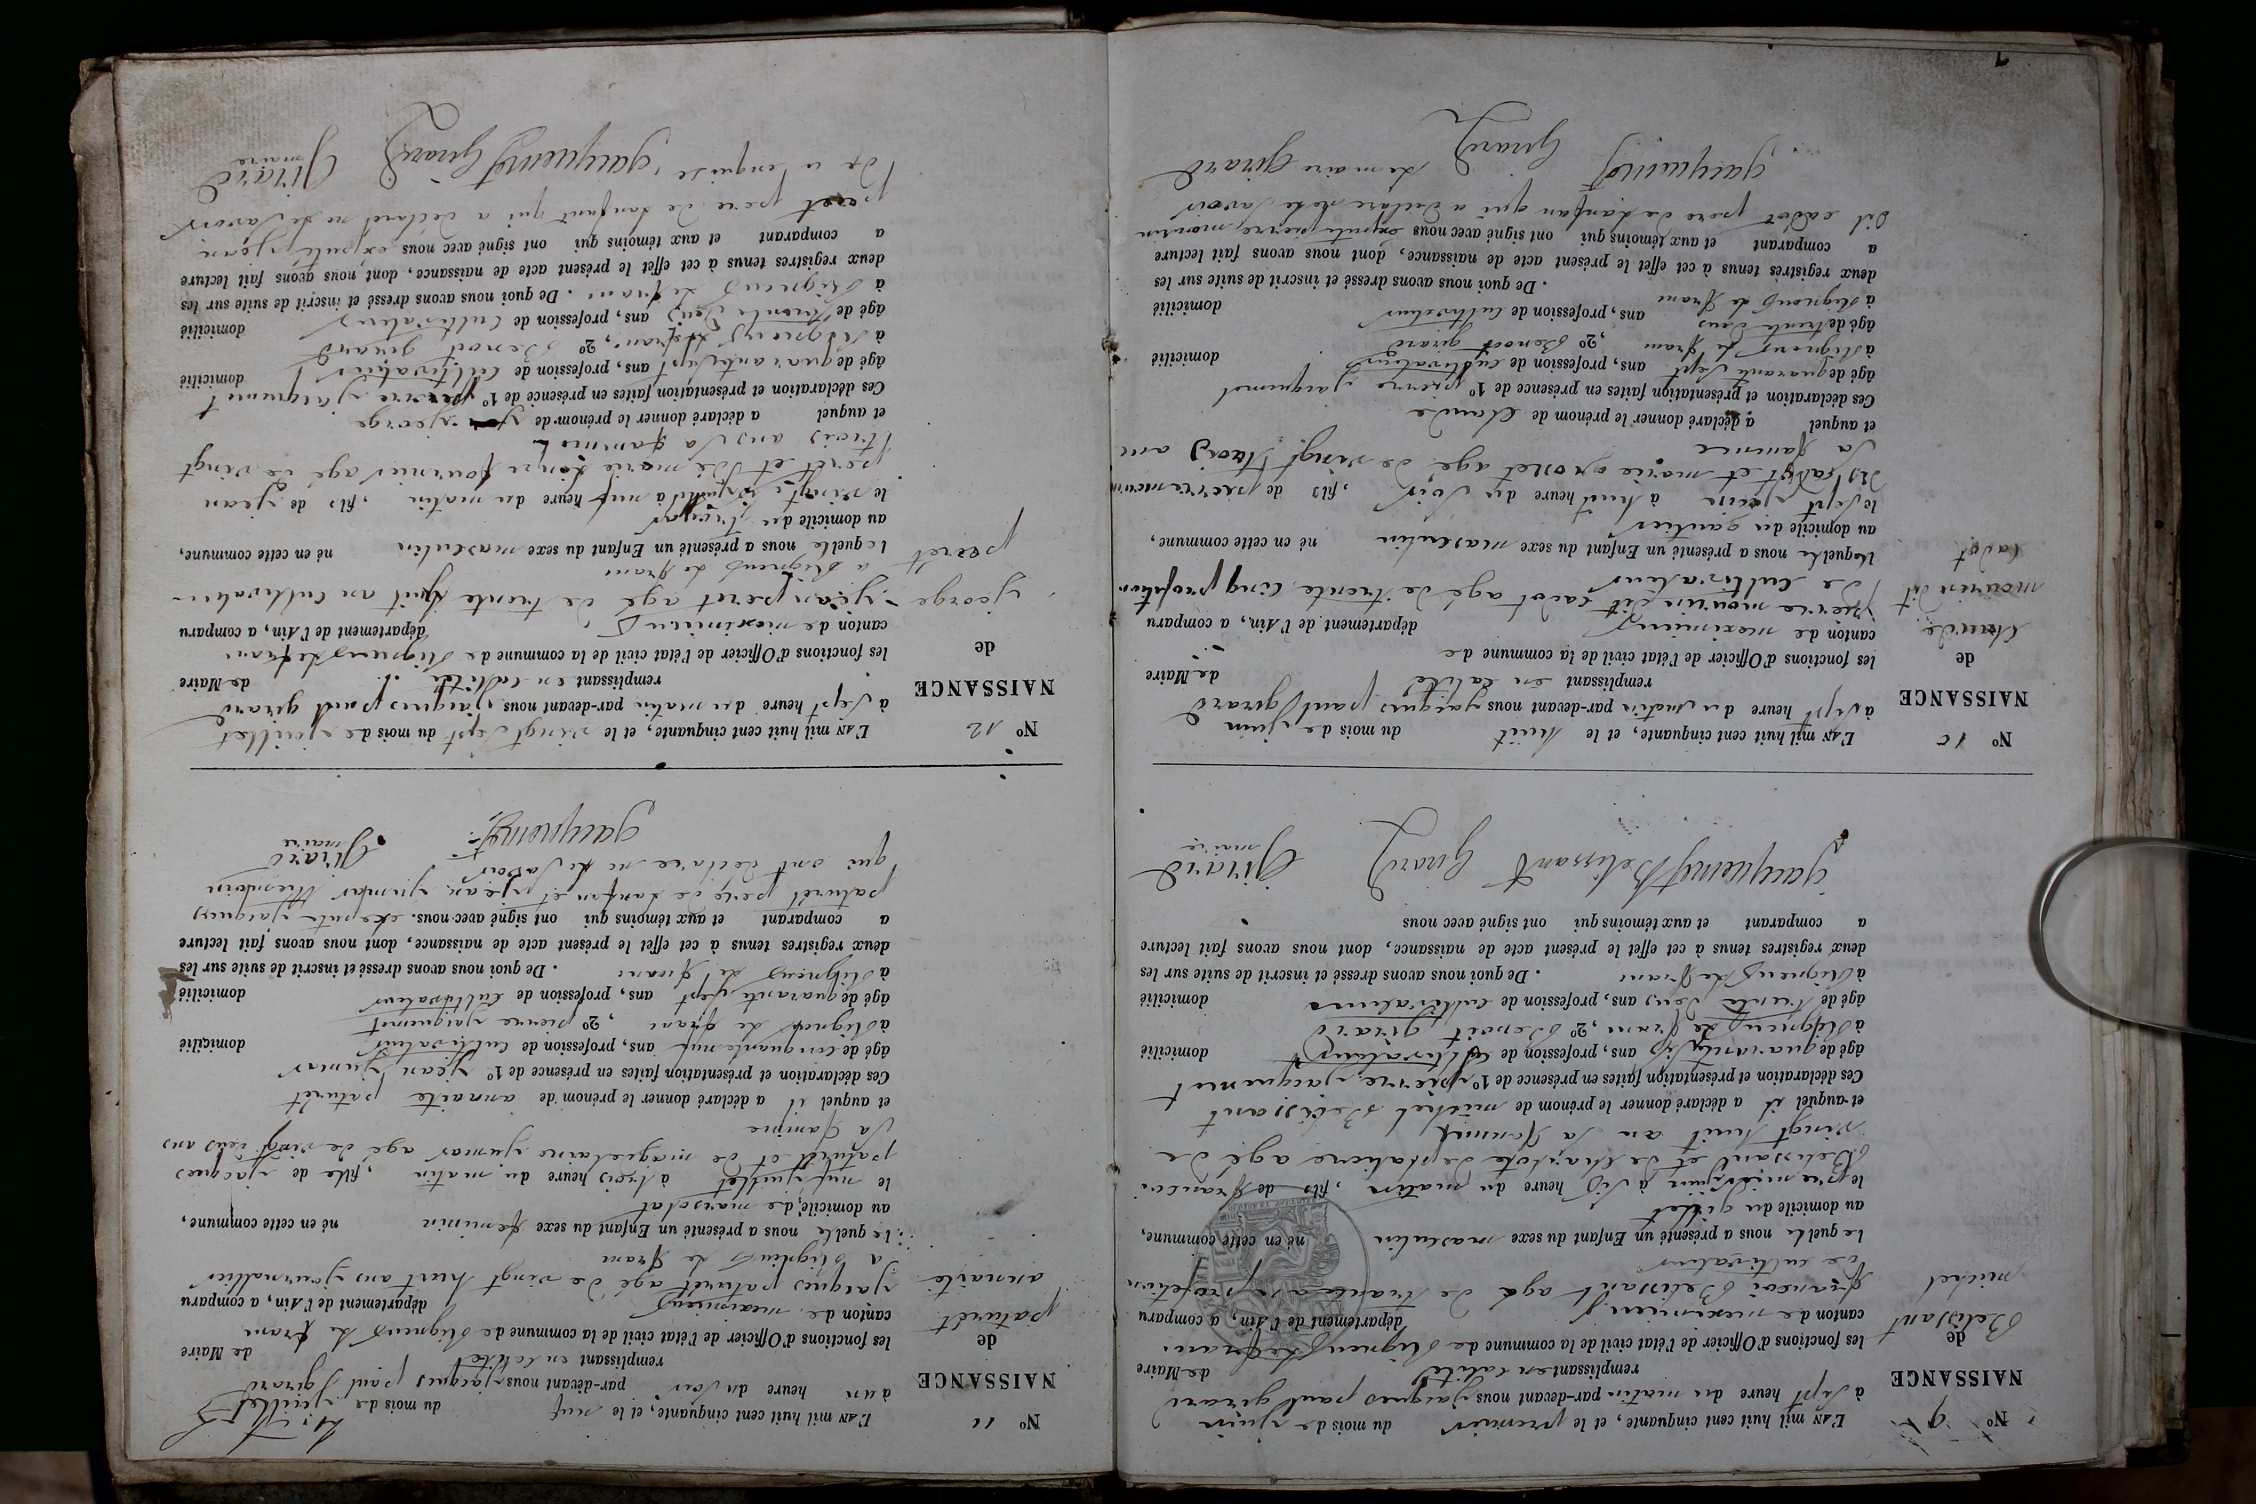 Nº 9
NAISSANCE
de
Belissant
michel
L'AN mil huit cent cinquante, et le premier du mois de juin
à sept heure du matin par-devant nous jacques paul girard
remplissant en calité de Maire
les fonctions d'Officier de l'état civil de la commune de Rignieux le franc
canton de meximieux département de l'Ain, a comparu
francoi Belissant agé de trante profetion
de cultivateur
Le quelle nous a présenté un Enfant du sexe masculin né en cette commune,
au domicile du gillet
le premier juin à six heure du matin, fils de francoi
Belissant et de Charlote agé de
vingt huit an sa famme
et auquel il a déclaré donner le prénom de michel Belissant
Ces déclaration et présentation faites en présence de 1º pierre jacquemet
âgé de quarante sept ans, profession de cultivateur domicilié
à Rignieux le franc, 2º Benoit girard
âgé de trente deux ans, profession de cultivateur domicilié
à Rignieux le franc. De quoi nous avons dressé et inscrit de suite sur les
deux registres tenus à cet effet le présent acte de naissance, dont nous avons fait lecture
a comparant et aux témoins qui ont signé avec nous
jacquemet Belissant Girard Girard
maire
Nº 10
NAISSANCE
de
Claude
mourin dit
Cadot
L'AN mil huit cent cinquante, et le huit du mois de juin
à sept heure du matin par-devant nous jacques paul girard
remplissant en calité de Maire
les fonctions d'Officier de l'état civil de la commune de
canton de meximieux département de l'Ain, a comparu
pierre mourin dit cadot agé de trente cinq profetion
de cultivateur
Lequelle nous a présenté un Enfant du sexe masculin né en cette commune,
au domicile du gautier
le sept juin à huit heure du soir, fils de pierre mourin
dit cadot et marie agé de vingt trois an
sa famme
et auquel a déclaré donner le prénom de Claude
Ces déclaration et présentation faites en présence de 1º pierre jacquemet
âgé de quarante sept ans, profession de cultivateur domicilié
à Rignieux le franc, 2º Benoit girard
âgé de trente deux ans, profession de cultivateur
à Rignieux le franc domicilié
. De quoi nous avons dressé et inscrit de suite sur les
deux registres tenus à cet effet le présent acte de naissance, dont nous avons fait lecture
a comparant et aux témoins qui ont signé avec nous exepté pierre mourin
dit cadot pere de lanfan qui a déclare ne le savoir
jacquemet Girard le maire girard
Nº 11
NAISSANCE
de
paturêt
annaite
L'AN mil huit cent cinquante, et le neuf du mois de juillet
à un heure du soir par-devant nous jacques paul girard
remplissant en calité de Maire
les fonctions d'Officier de l'état civil de la commune de Rignieux le franc
canton de meximieux département de l'Ain, a comparu
jacques paturêt agé de vingt huit ans journallier
a Rignieux le franc
le quelle nous a présenté un Enfant du sexe feminin né en cette commune,
au domicile de marsolat
le neuf juillet à trois heure du matin, fille de jacques
paturêt et de magdelaine jumas agé de vingt ans
sa famme
et auquel il a déclaré donner le prénom de annaite paturêt
Ces déclaration et présentation faites en présence de 1º jean jumas
âgé de cinquante neuf ans, profession de cultivateur domicilié
à Rignieux le franc, 2º pierre jacquemet
âgé de quarante sept ans, profession de cultivateur domicilié
à Rignieux le franc. De quoi nous avons dressé et inscrit de suite sur les
deux registres tenus à cet effet le présent acte de naissance, dont nous avons fait lecture
a comparant et aux témoins qui ont signé avec nous exepté jacques
paturêt pere de lanfan et jean jumas
qui ont déclare ne le savoir
jacquemet Girard
maire
Nº 12
NAISSANCE
de
george
peret
L'AN mil huit cent cinquante, et le vingt sept du mois de juillet
à sept heure du matin par-devant nous jacques paul girard
remplissant en calité de Maire
les fonctions d'Officier de l'état civil de la commune de Rignieux le franc
canton de meximieux département de l'Ain, a comparu
jean peret agé de trente huit an cultivateur
a Rignieux le franc
le quelle nous a présenté un Enfant du sexe masculin né en cette commune,
au domicile du
le vingt juillet a neuf heure du matin, fils de jean
peret et de marie fournier agé de vingt
trois ans sa famme
et auquel a déclaré donner le prénom de george
Ces déclaration et présentation faites en présence de 1º pierre jacquemet
âgé de quarante sept ans, profession de cultivateur domicilié
à Rignieux le franc, 2º Benoit girard
âgé de trente deux ans, profession de cultivateur domicilié
à Rignieux le franc. De quoi nous avons dressé et inscrit de suite sur les
deux registres tenus à cet effet le présent acte de naissance, dont nous avons fait lecture
a comparant et aux témoins qui ont signé avec nous exepté jean
peret pere de lanfant qui a déclaré ne le savoir
de u enquise jacquemet Girard Girard
maire